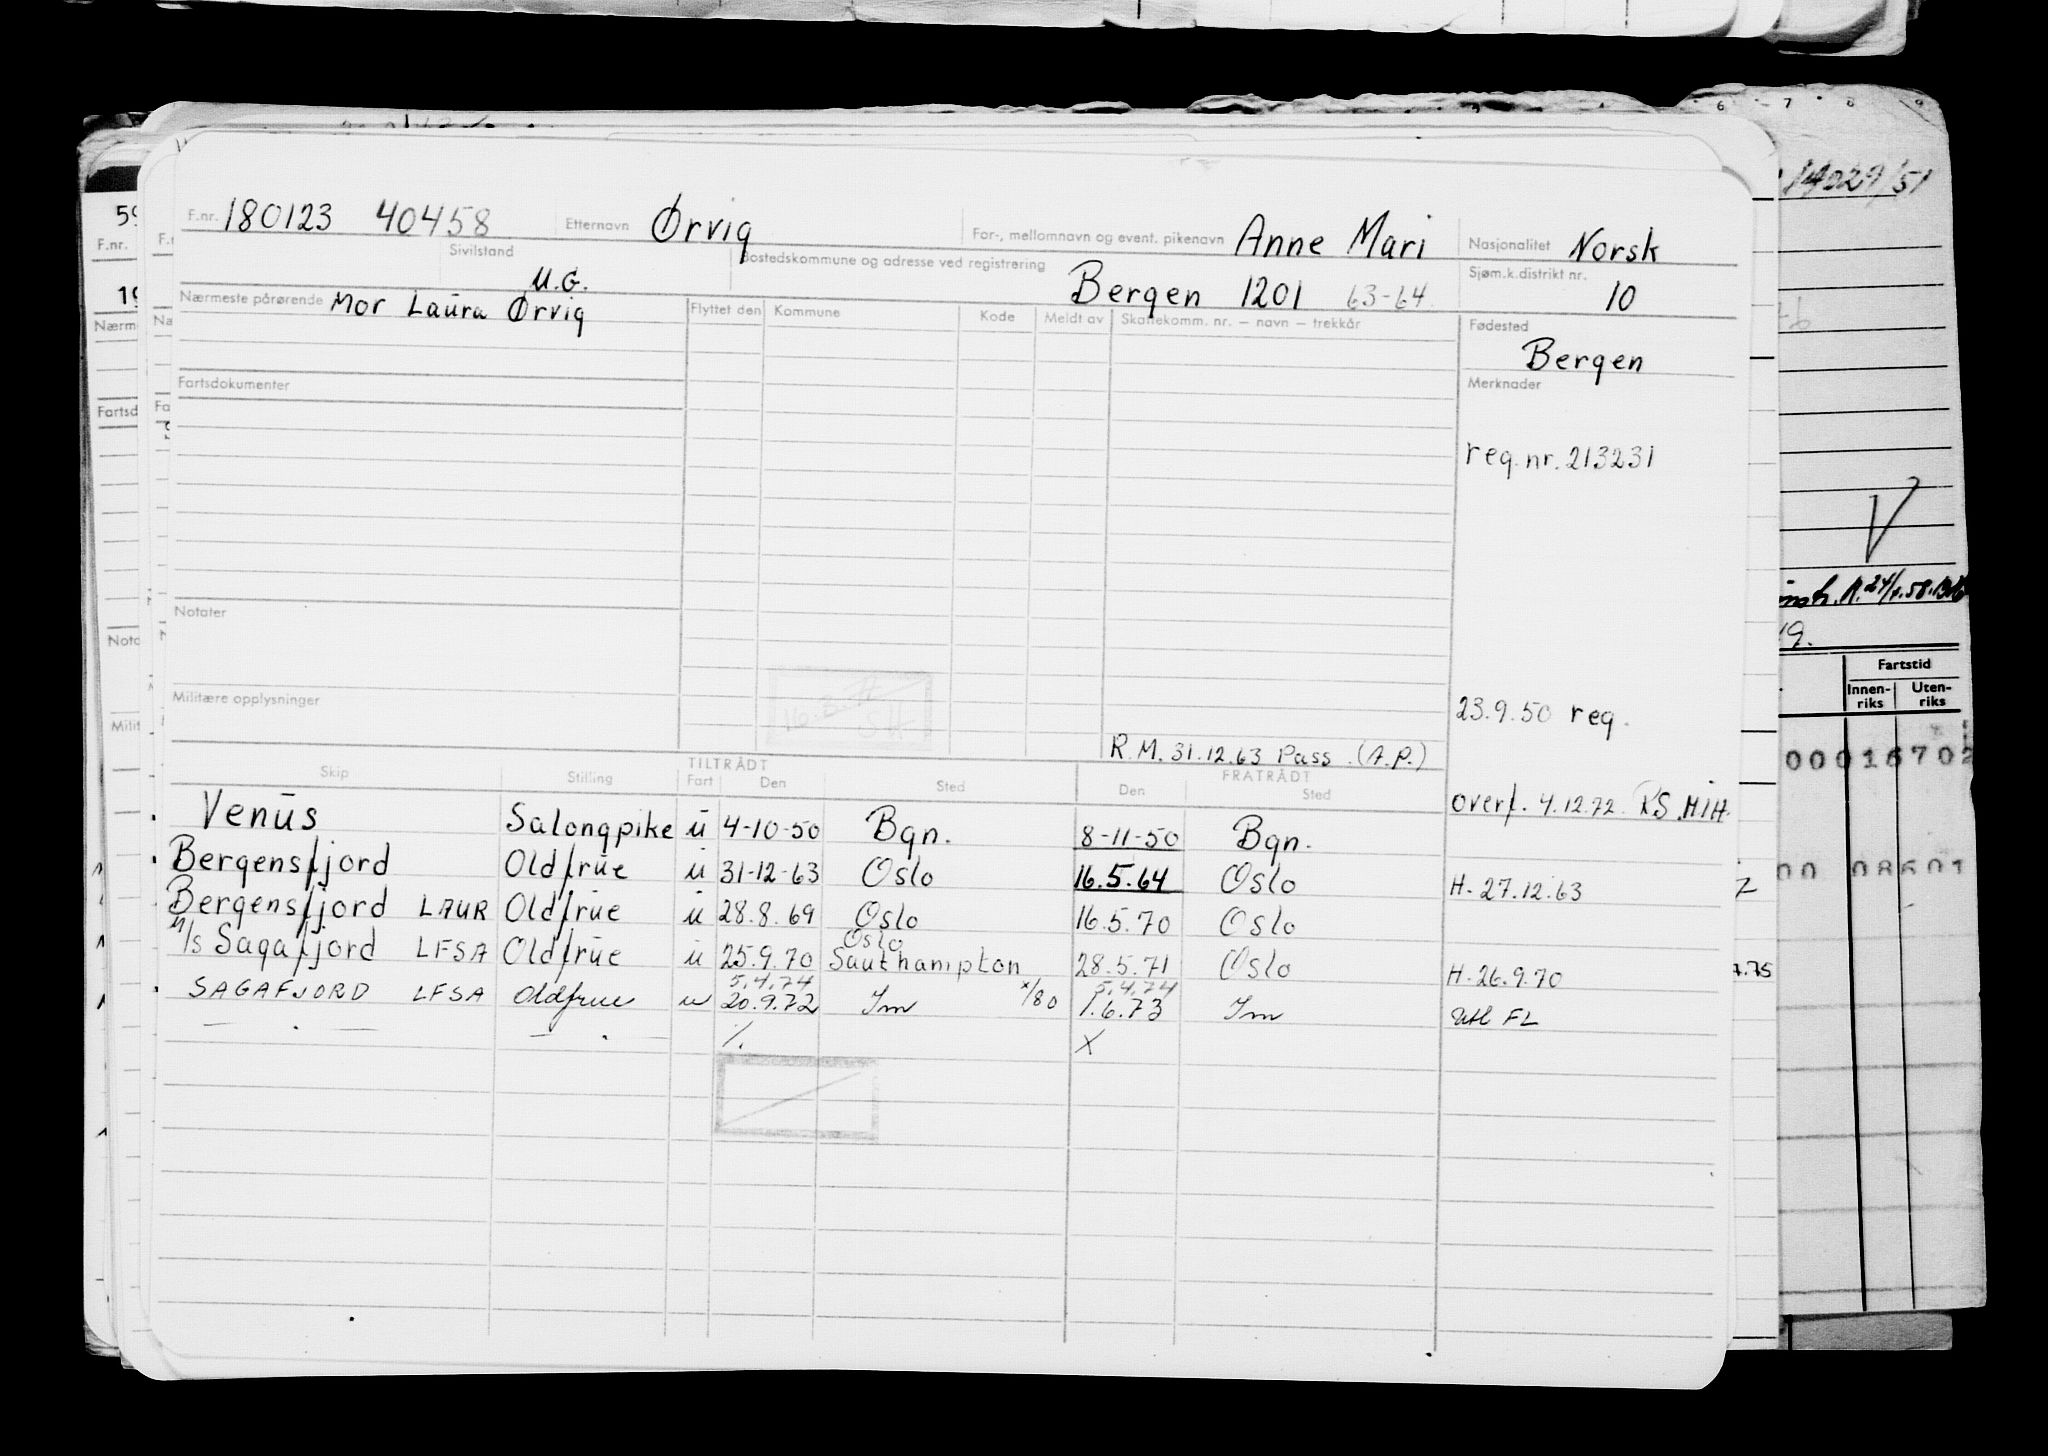 6 7 8 9
14029/51
F.nr. 180123 40458 Etternavn Ørvig For-, mellomnavn og event. pikenavn Anne Mari Nasjonalitet Norsk
Sivilstand U.G. Bostedskommune og adresse ved registrering Bergen 1201 63-64 Sjøm.k.distrikt nr. 10
Nærmeste pårørende Mor Laura Ørvig Flyttet den Kommune Kode Meldt av Skattekomm. nr. – navn – trekkår Fødested
Bergen
Fartsdokumenter Merknader
reg. nr. 213231
Notater
Militære opplysninger 23.9.50 reg.
R.M. 31.12.63 Pass. (A.P.)
TILTRÅDT FRATRÅDT
Skip Stilling Fart Den Sted Den Sted
overf. 4.12.72 RS MIH.
Venus Salongpike u 4-10-50 Bgn. 8-11-50 Bgn.
Bergensfjord Oldfrue u 31-12-63 Oslo 16.5.64 Oslo H. 27.12.63
Bergensfjord LAUR Oldfrue u 28.8.69 Oslo 16.5.70 Oslo
Oslo
M/s Sagafjord LFSA Oldfrue u 25.9.70 Southampton 28.5.71 Oslo H. 26.9.70
5.4.74 5.4.74
SAGAFJORD LFSA Oldfrue u 20.9.72 Im x/80 1.6.73 Im Utl FL
— . — — . — %. X
59
F.nr.
19
Nærm
Fartsd
Nota
Milit
F.n
Na
Fa
19.
Fartstid
Innen-riks Uten-riks
00016702
00 08601
7.75